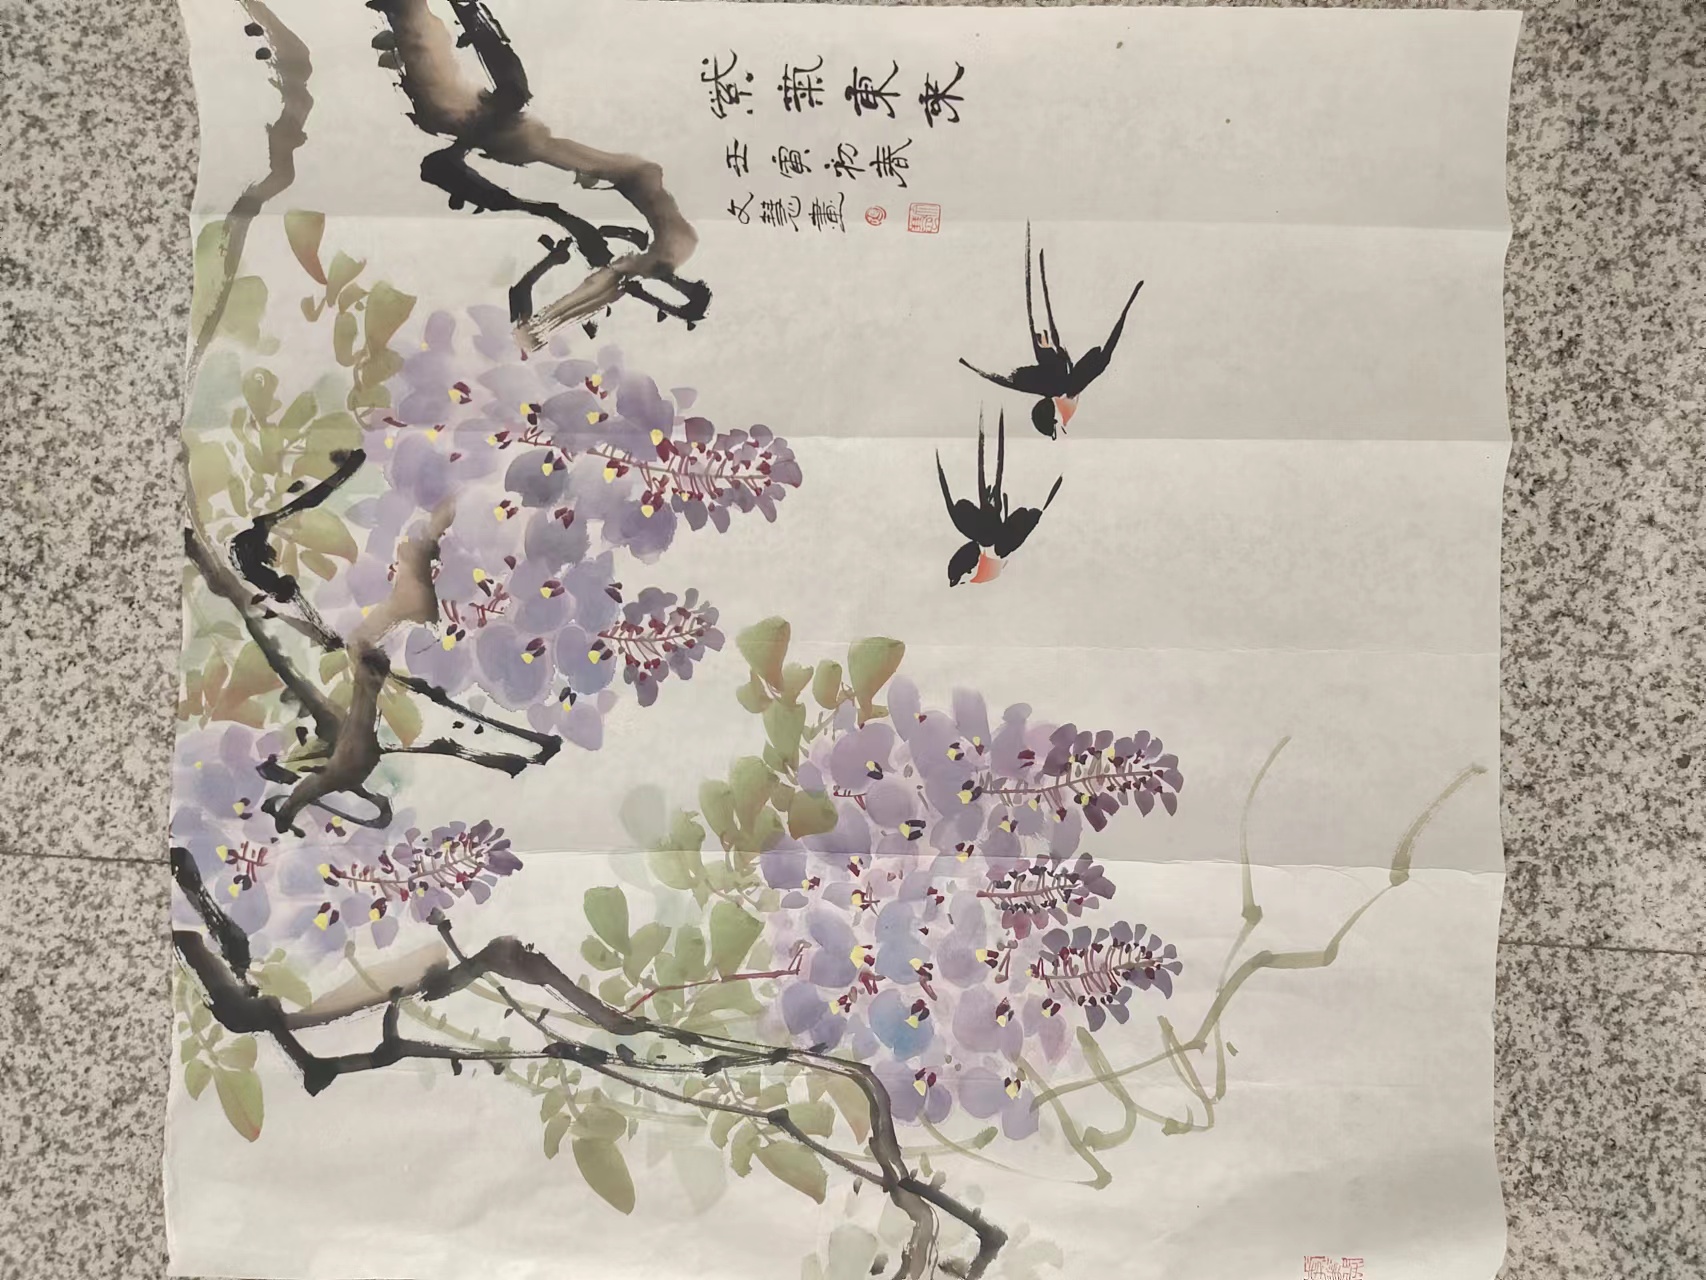 紫氣東来
壬寅初春
文慧畫